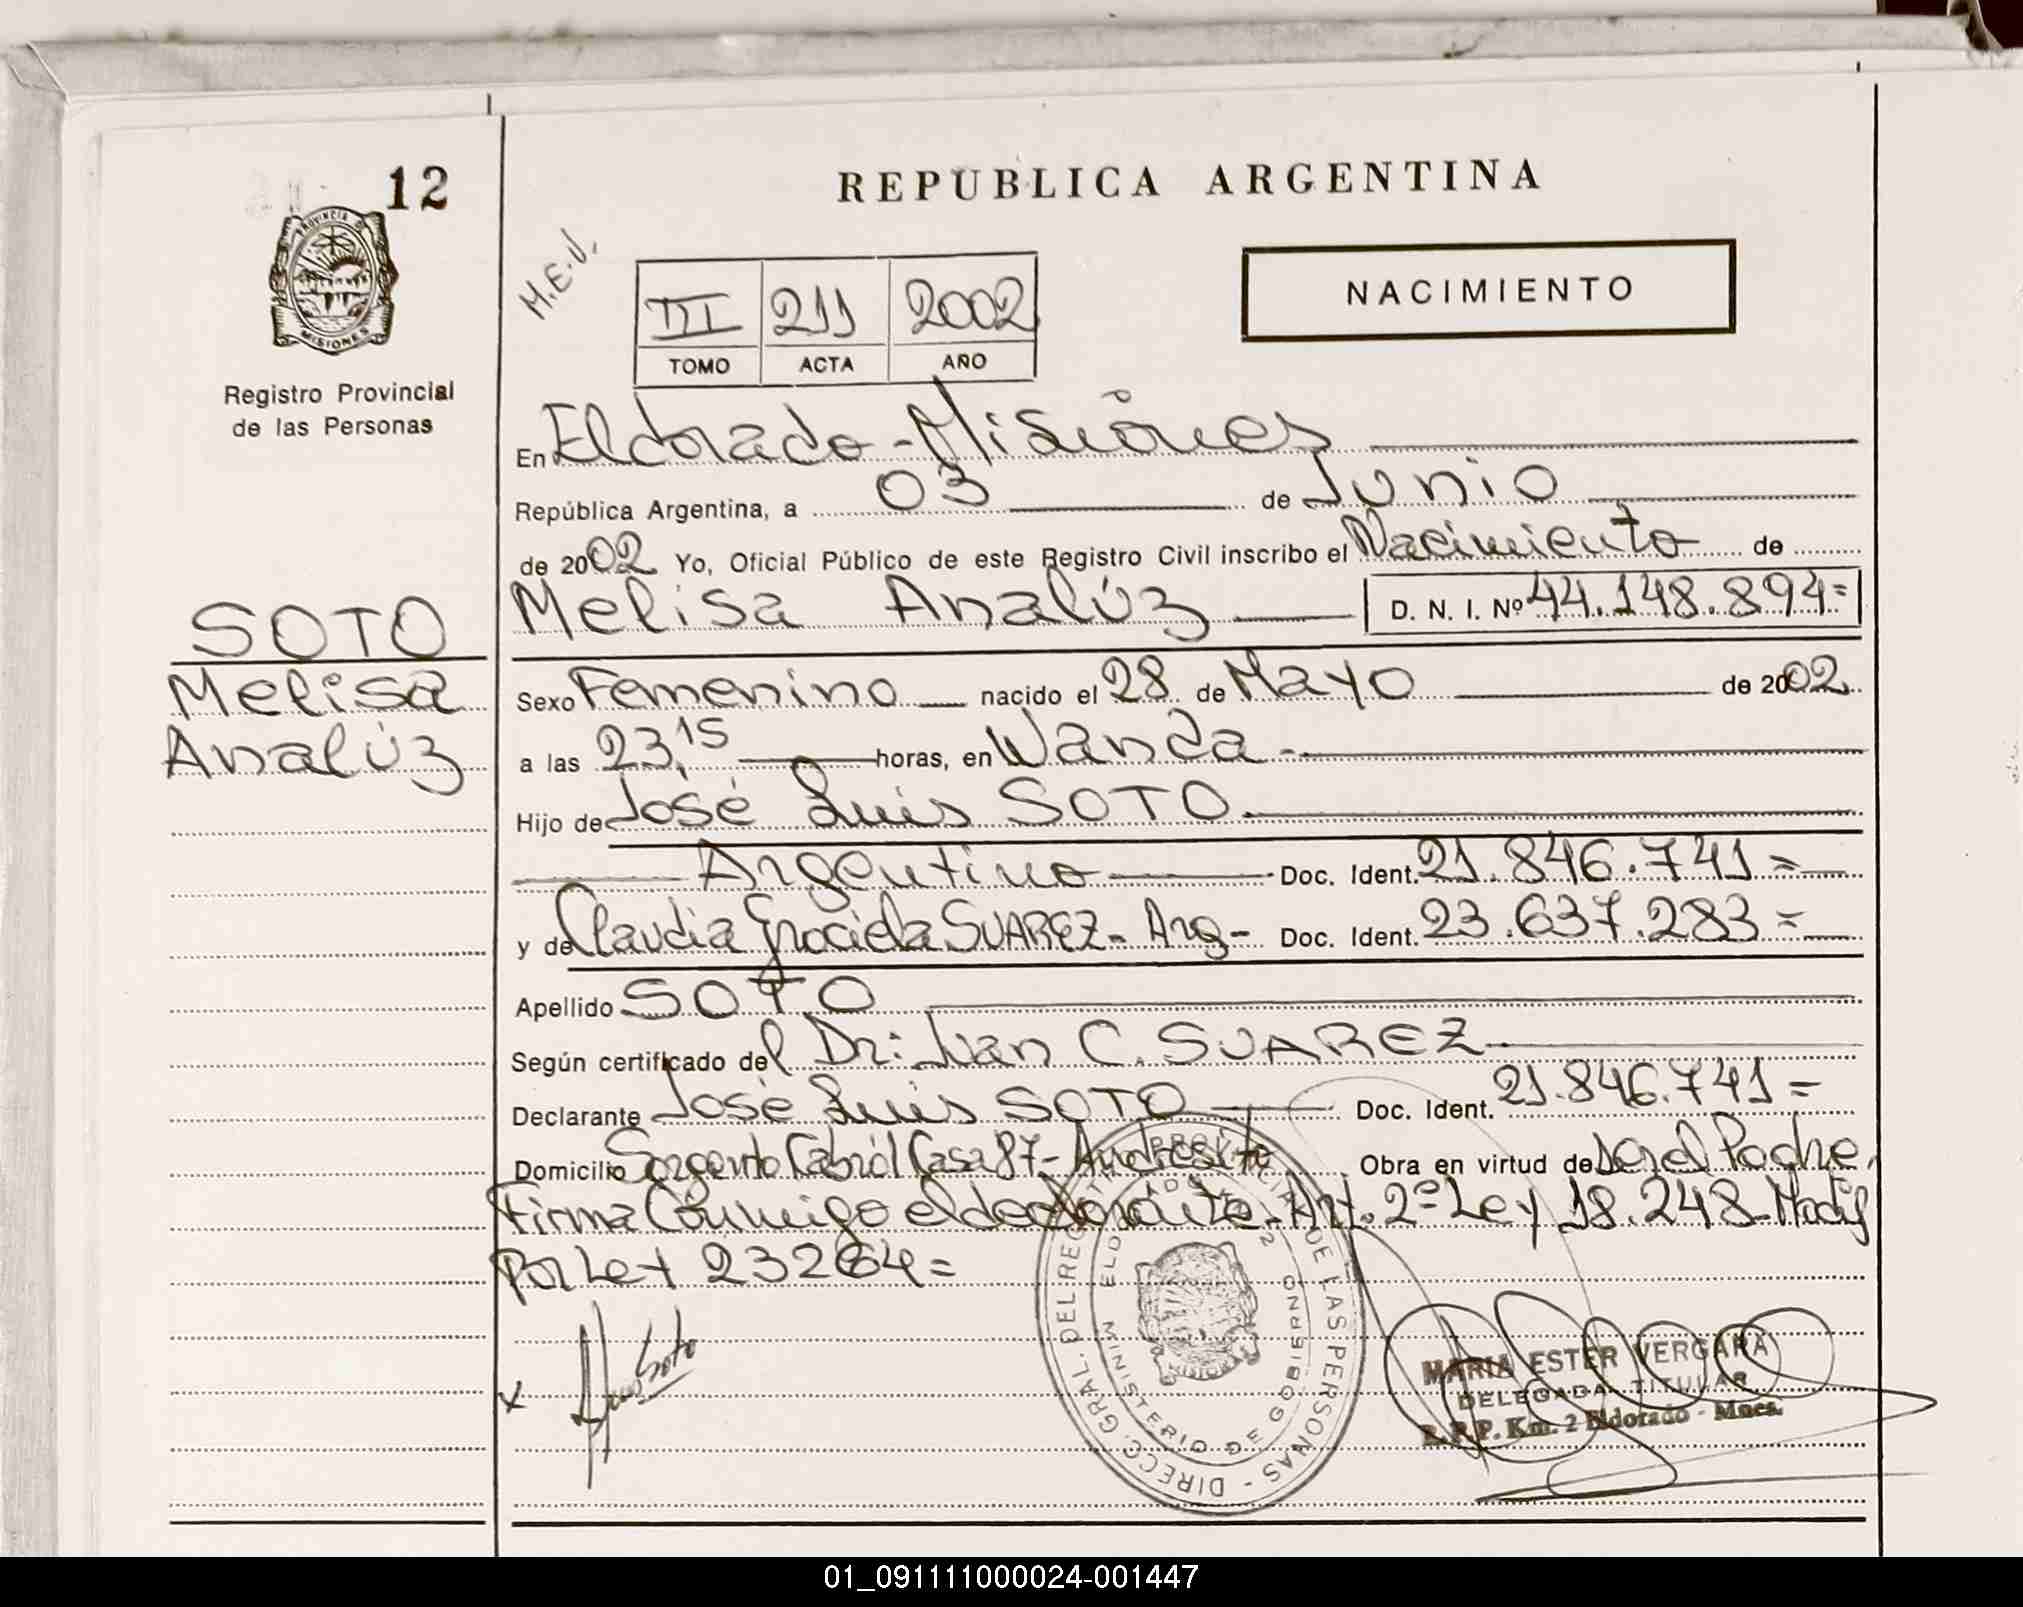 12
PROVINCIA DE
MISIONES
Registro Provincial
de las Personas
SOTO
Melisa
Analúz
REPUBLICA ARGENTINA
M.E.J.
III 211 2002
TOMO ACTA AÑO
NACIMIENTO
En Eldorado - Misiones
República Argentina, a 03 de Junio
de 2002 Yo, Oficial Público de este Registro Civil inscribo el Nacimiento de
Melisa Analúz D. N. I. Nº 44.148.894=
Sexo Femenino nacido el 28 de Mayo de 2002
a las 23,15 horas, en Wanda -
Hijo de José Luis SOTO
Argentino Doc. Ident. 21.846.741 =
y de Claudia Graciela SUAREZ - Arg - Doc. Ident. 23.637.283 =
Apellido SOTO
Según certificado del Dr: Juan C. SUAREZ
Declarante José Luis SOTO Doc. Ident. 21.846.741 =
Domicilio Sargento Cabral Casa 87 - Andresito Obra en virtud de ser el Padre.
Firma Conmigo el declarante. Art. 2º Ley 18.248 Modif
Por Ley 23264 =
x Soto
DIRECC. GRAL. DEL REG. PROVINCIAL DE LAS PERSONAS -
MINISTERIO DE GOBIERNO
MISIONES
MARIA ESTER VERGARA
DELEGADA TITULAR
R.P.P. Km. 2 Eldorado - Mnes.
01_091111000024-001447